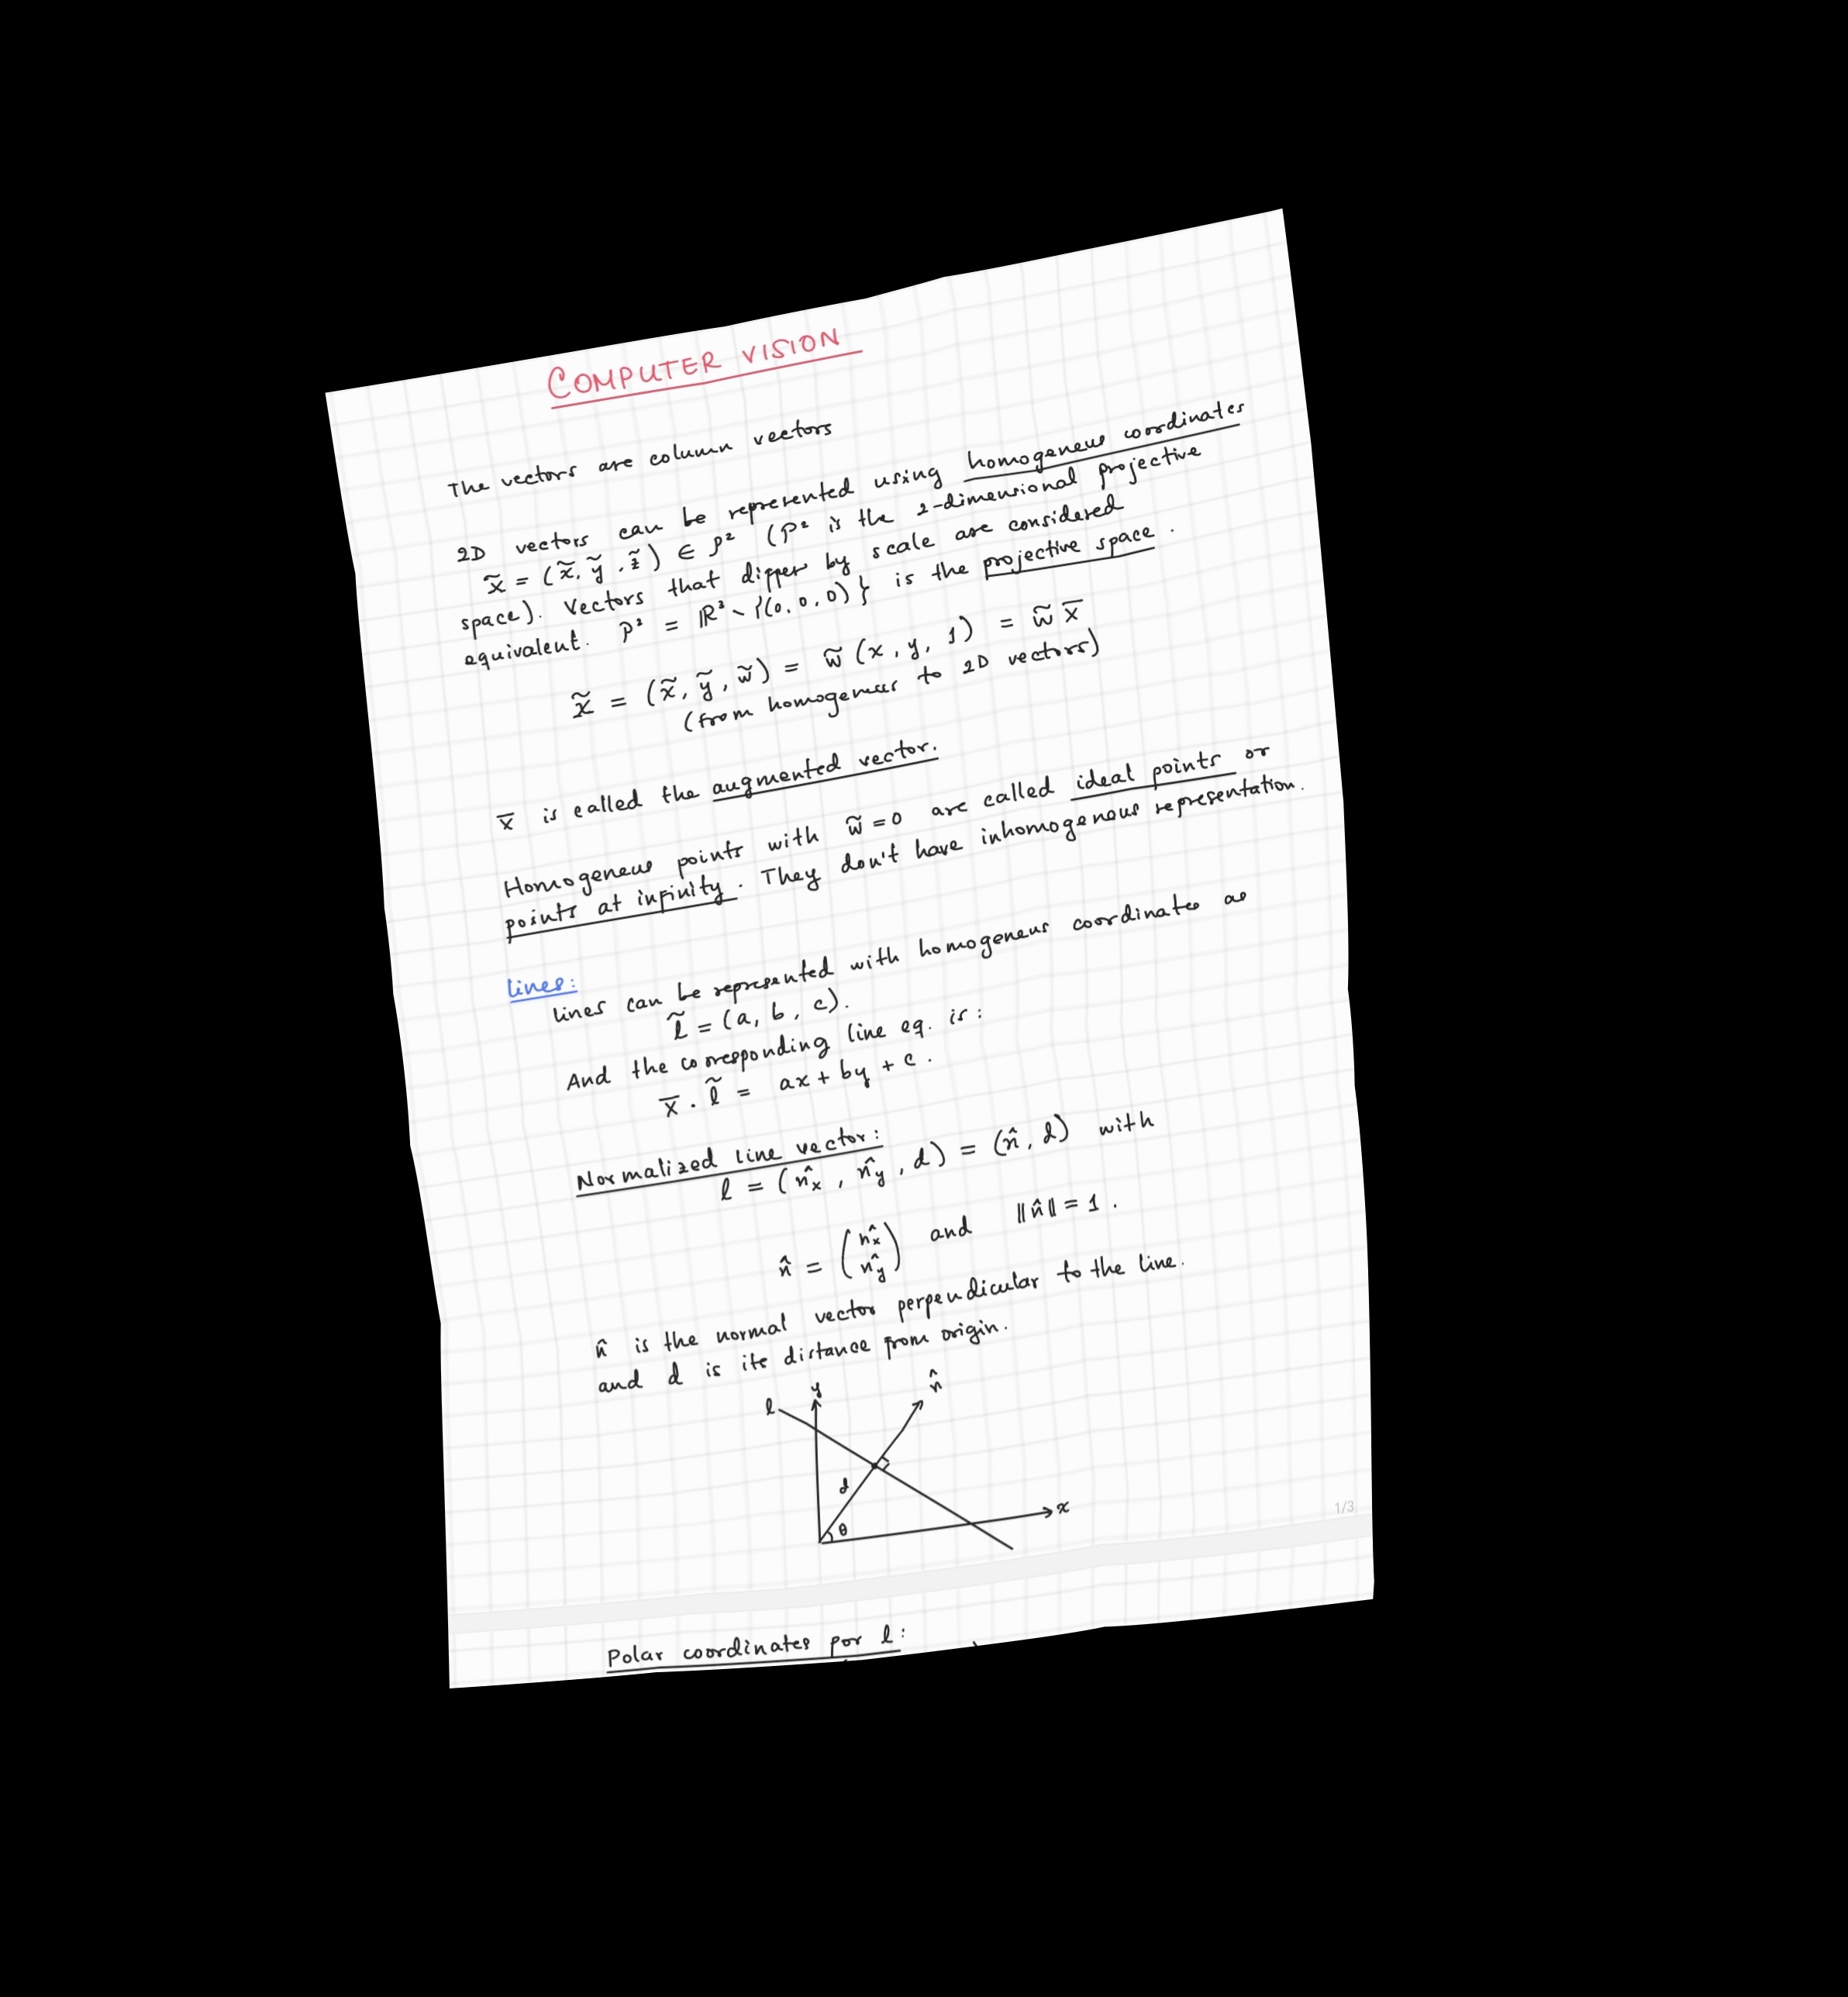 COMPUTER VISION
The vectors are column vectors
2D vectors can be represented using homogeneus coordinates
x̃ = (x̃, ỹ, z̃) ∈ P² (P² is the 2-dimensional projective
space). Vectors that differ by scale are considered
equivalent. P² = ℝ³ \ {(0,0,0)} is the projective space.
x̃ = (x̃, ỹ, w̃) = w̃ (x, y, 1) = w̃ x̅
(from homogeneus to 2D vectors)
x̅ is called the augmented vector.
Homogeneus points with w̃ = 0 are called ideal points or
points at infinity. They don't have inhomogenous representation.
lines:
lines can be represented with homogeneus coordinates as
l̃ = (a, b, c).
And the corresponding line eq. is:
x̅ . l̃ = ax + by + c.
Normalized line vector:
l = (n̂x, n̂y, d) = (n̂, d) with
n̂ = (n̂x n̂y) and ‖n̂‖ = 1.
n̂ is the normal vector perpendicular to the line.
and d is its distance from origin.
l y n̂
d
θ x
1/3
Polar coordinates for l: